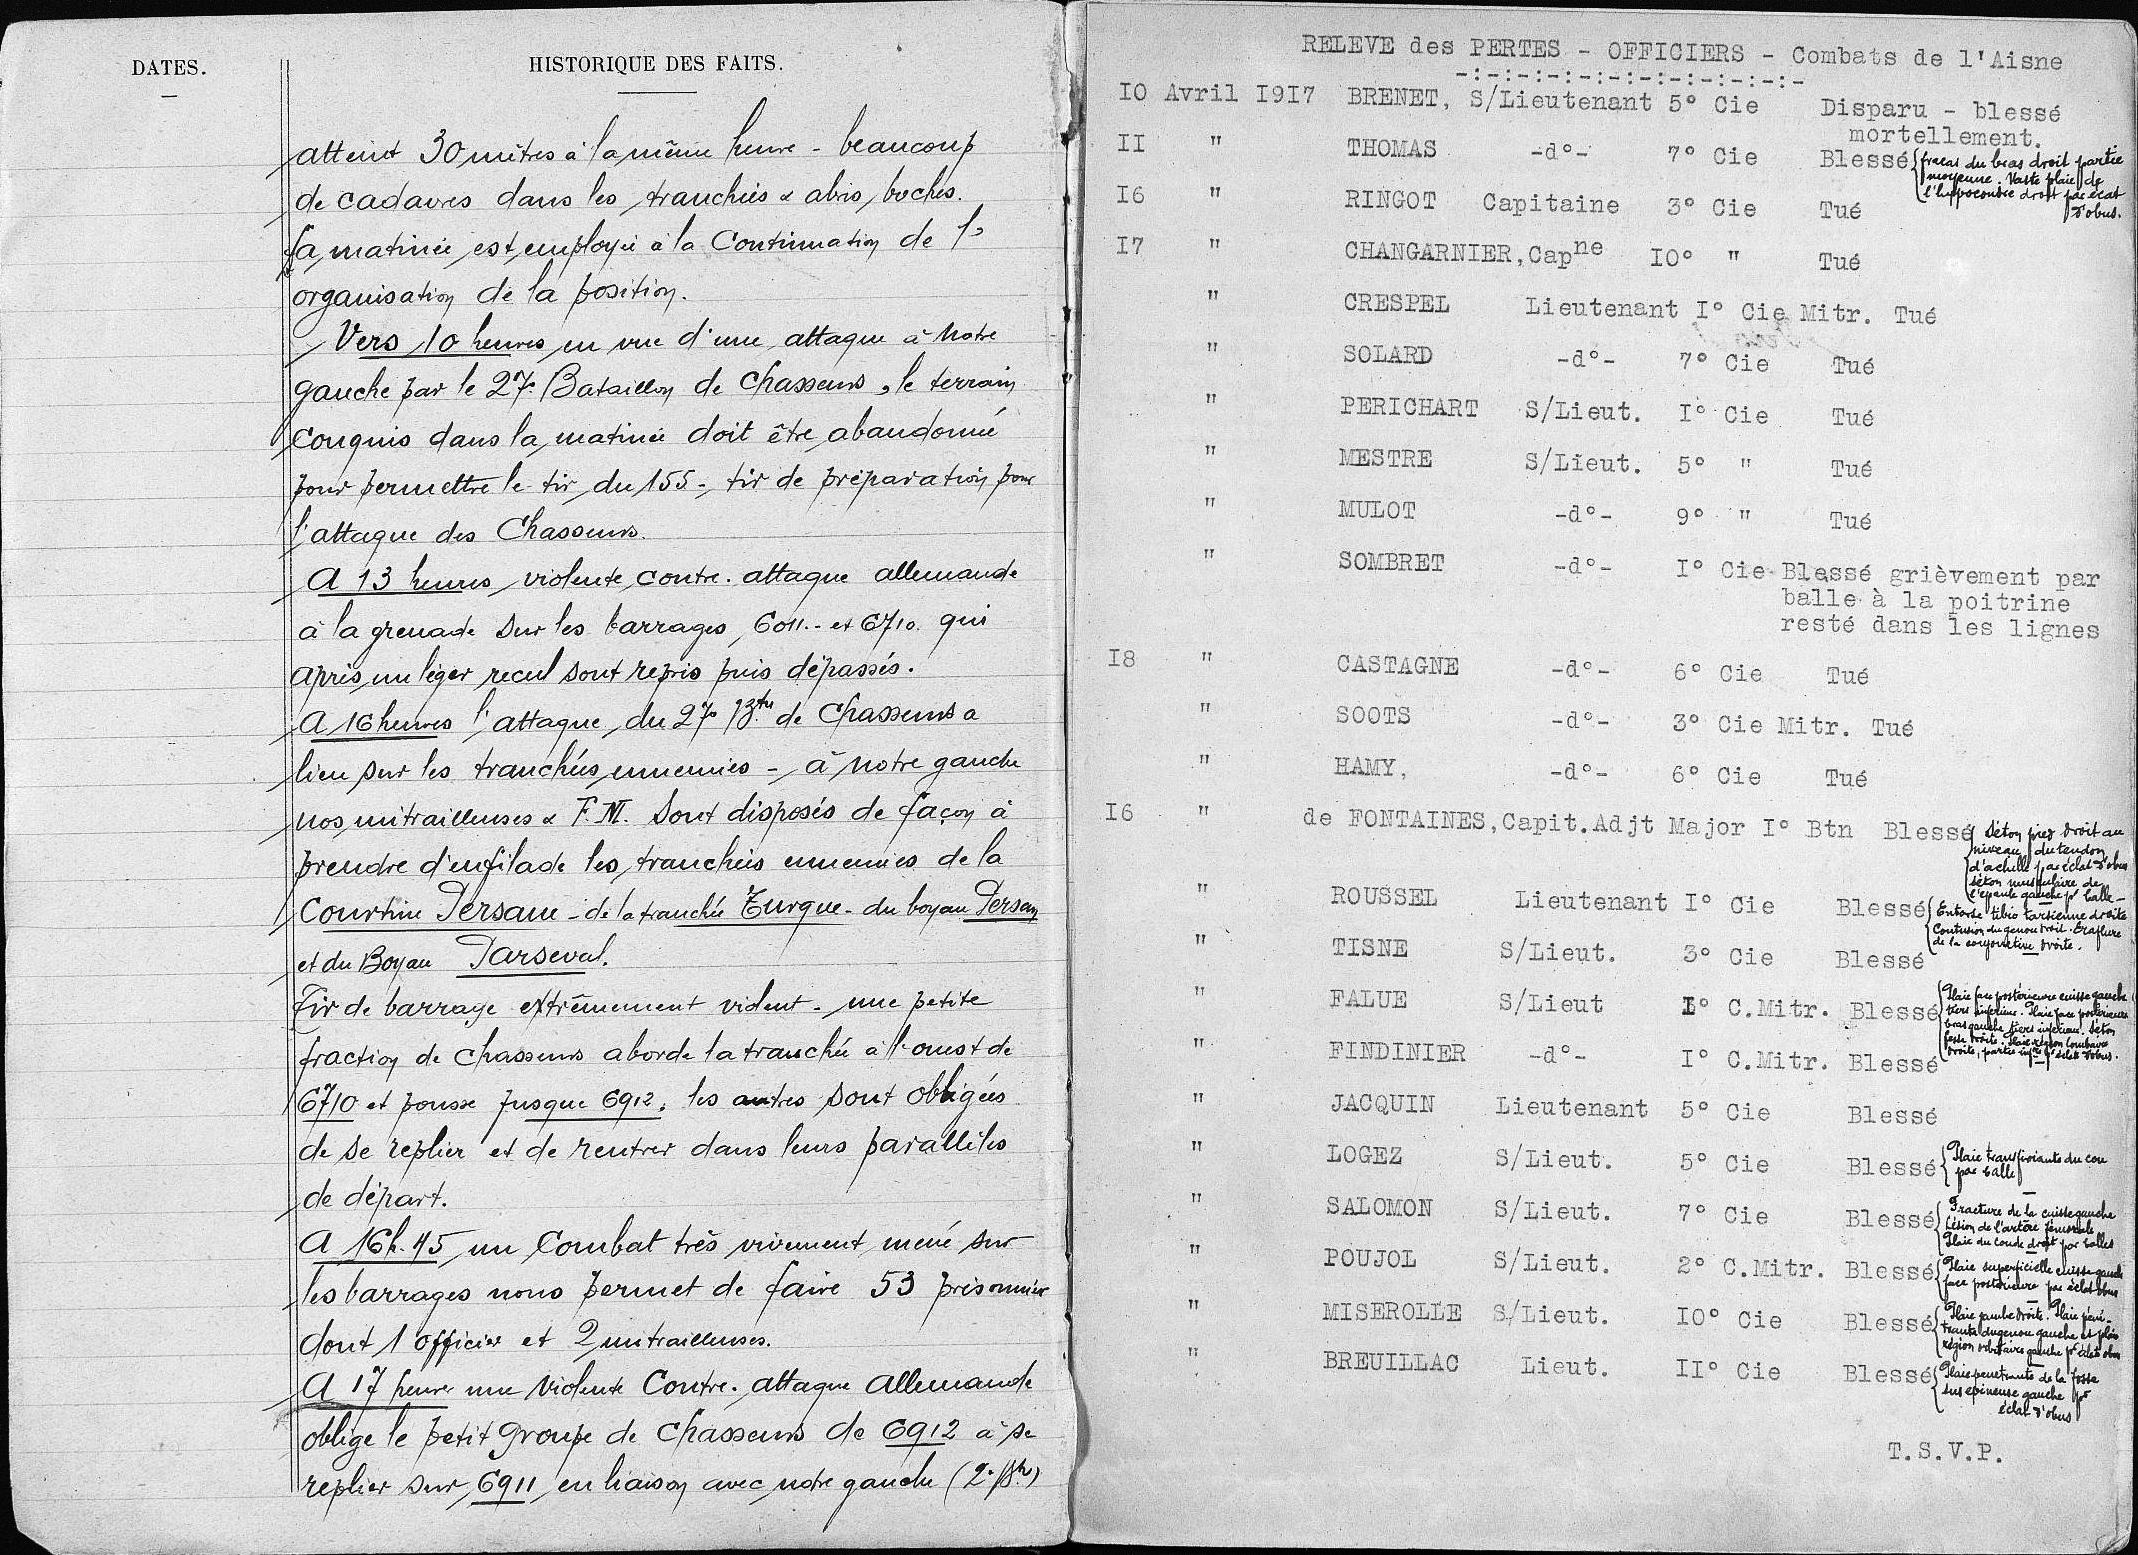 DATES.
HISTORIQUE DES FAITS.
atteint 30 mètres à la même heure - beaucoup
de cadavres dans les tranchées & abris boches.
La matinée est employée à la Continuation de l'
organisation de la position.
Vers 10 heures en vue d'une attaque à Notre
gauche par le 27e Bataillon de Chasseurs, le terrain
conquis dans la matinée doit être abandonné
pour permettre le tir du 155 - tir de préparation pour
l'attaque des Chasseurs.
A 13 heures violente contre-attaque allemande
à la grenade sur les barrages 6011.. et 6710. qui
après un léger recul sont repris puis dépassés.
A 16 heures l'attaque du 27e Btn de Chasseurs a
lieu sur les tranchées ennemies - à notre gauche
nos mitrailleuses & F.M. Sont disposés de façon à
prendre d'enfilade les tranchées ennemies de la
Courtine Persane - de la tranchée Turque - du boyau Persan
et du Boyau Parseval.
Tir de barrage extrêmement violent - une petite
fraction de Chasseurs aborde la tranchée à l'ouest de
6710 et pousse jusque 6912, les autres sont obligées
de se replier et de rentrer dans leurs parallèles
de départ.
A 16h.45 un Combat très vivement mené sur
les barrages nous permet de faire 53 prisonniers
dont 1 officier et 2 mitrailleuses.
A 17 heures une Violente Contre-attaque Allemande
oblige le petit groupe de Chasseurs de 6912 à se
replier sur 6911 en liaison avec notre gauche (2e Btn)
RELEVE des PERTES - OFFICIERS - Combats de l'Aisne
-:-:-:-:-:-:-:-:-:-:-:-
IO Avril I9I7 BRENET, S/Lieutenant 5° Cie Disparu - blessé
mortellement.
II " THOMAS -d°- 7° Cie Blessé { fracas du bras droit partie
moyenne. Vaste plaie de
l'hypocondre droit par éclat
d'obus.
I6 " RINGOT Capitaine 3° Cie Tué
I7 " CHANGARNIER, Capne IO° " Tué
" CRESPEL Lieutenant I° Cie Mitr. Tué
" SOLARD -d°- 7° Cie Tué
" PERICHART S/Lieut. I° Cie Tué
" MESTRE S/Lieut. 5° " Tué
" MULOT -d°- 9° " Tué
" SOMBRET -d°- I° Cie Blessé grièvement par
balle à la poitrine
resté dans les lignes
I8 " CASTAGNE -d°- 6° Cie Tué
" SOOTS -d°- 3° Cie Mitr. Tué
" HAMY, -d°- 6° Cie Tué
I6 " de FONTAINES, Capit. Adjt Major I° Btn Blessé { Séton pied droit au
niveau du tendon
d'achille par éclat d'obus
séton musculaire de
l'épaule gauche pr balle -
" ROUSSEL Lieutenant I° Cie Blessé { Entorse tibio tarsienne droite
Contusion du genou droit. Eraflure
de la conjonctive droite.
" TISNE S/Lieut. 3° Cie Blessé
" FALUE S/Lieut I° C.Mitr. Blessé { Plaie face postérieure cuisse gauche
tiers inférieur. Plaie face postérieure
bras gauche tiers inférieur. Séton
fesse droite. Plaie région lombaire
droite, partie infre pr éclats d'obus.
" FINDINIER -d°- I° C.Mitr. Blessé
" JACQUIN Lieutenant 5° Cie Blessé
" LOGEZ S/Lieut. 5° Cie Blessé { Plaie transfixiante du cou
par balle
" SALOMON S/Lieut. 7° Cie Blessé { Fracture de la cuisse gauche
Lésion de l'artère fémorale
Plaie du coude droit par balles
" POUJOL S/Lieut. 2° C.Mitr. Blessé { Plaie superficielle cuisse gauche
face postérieure par éclat obus
" MISEROLLE S/Lieut. IO° Cie Blessé { Plaie jambe droite. Plaie péné-
trante du genou gauche et plaie
région orbitaire gauche pr éclats obus
" BREUILLAC Lieut. II° Cie Blessé { Plaie penetrante de la fosse
sus epineuse gauche pr
éclat d'obus
T.S.V.P.